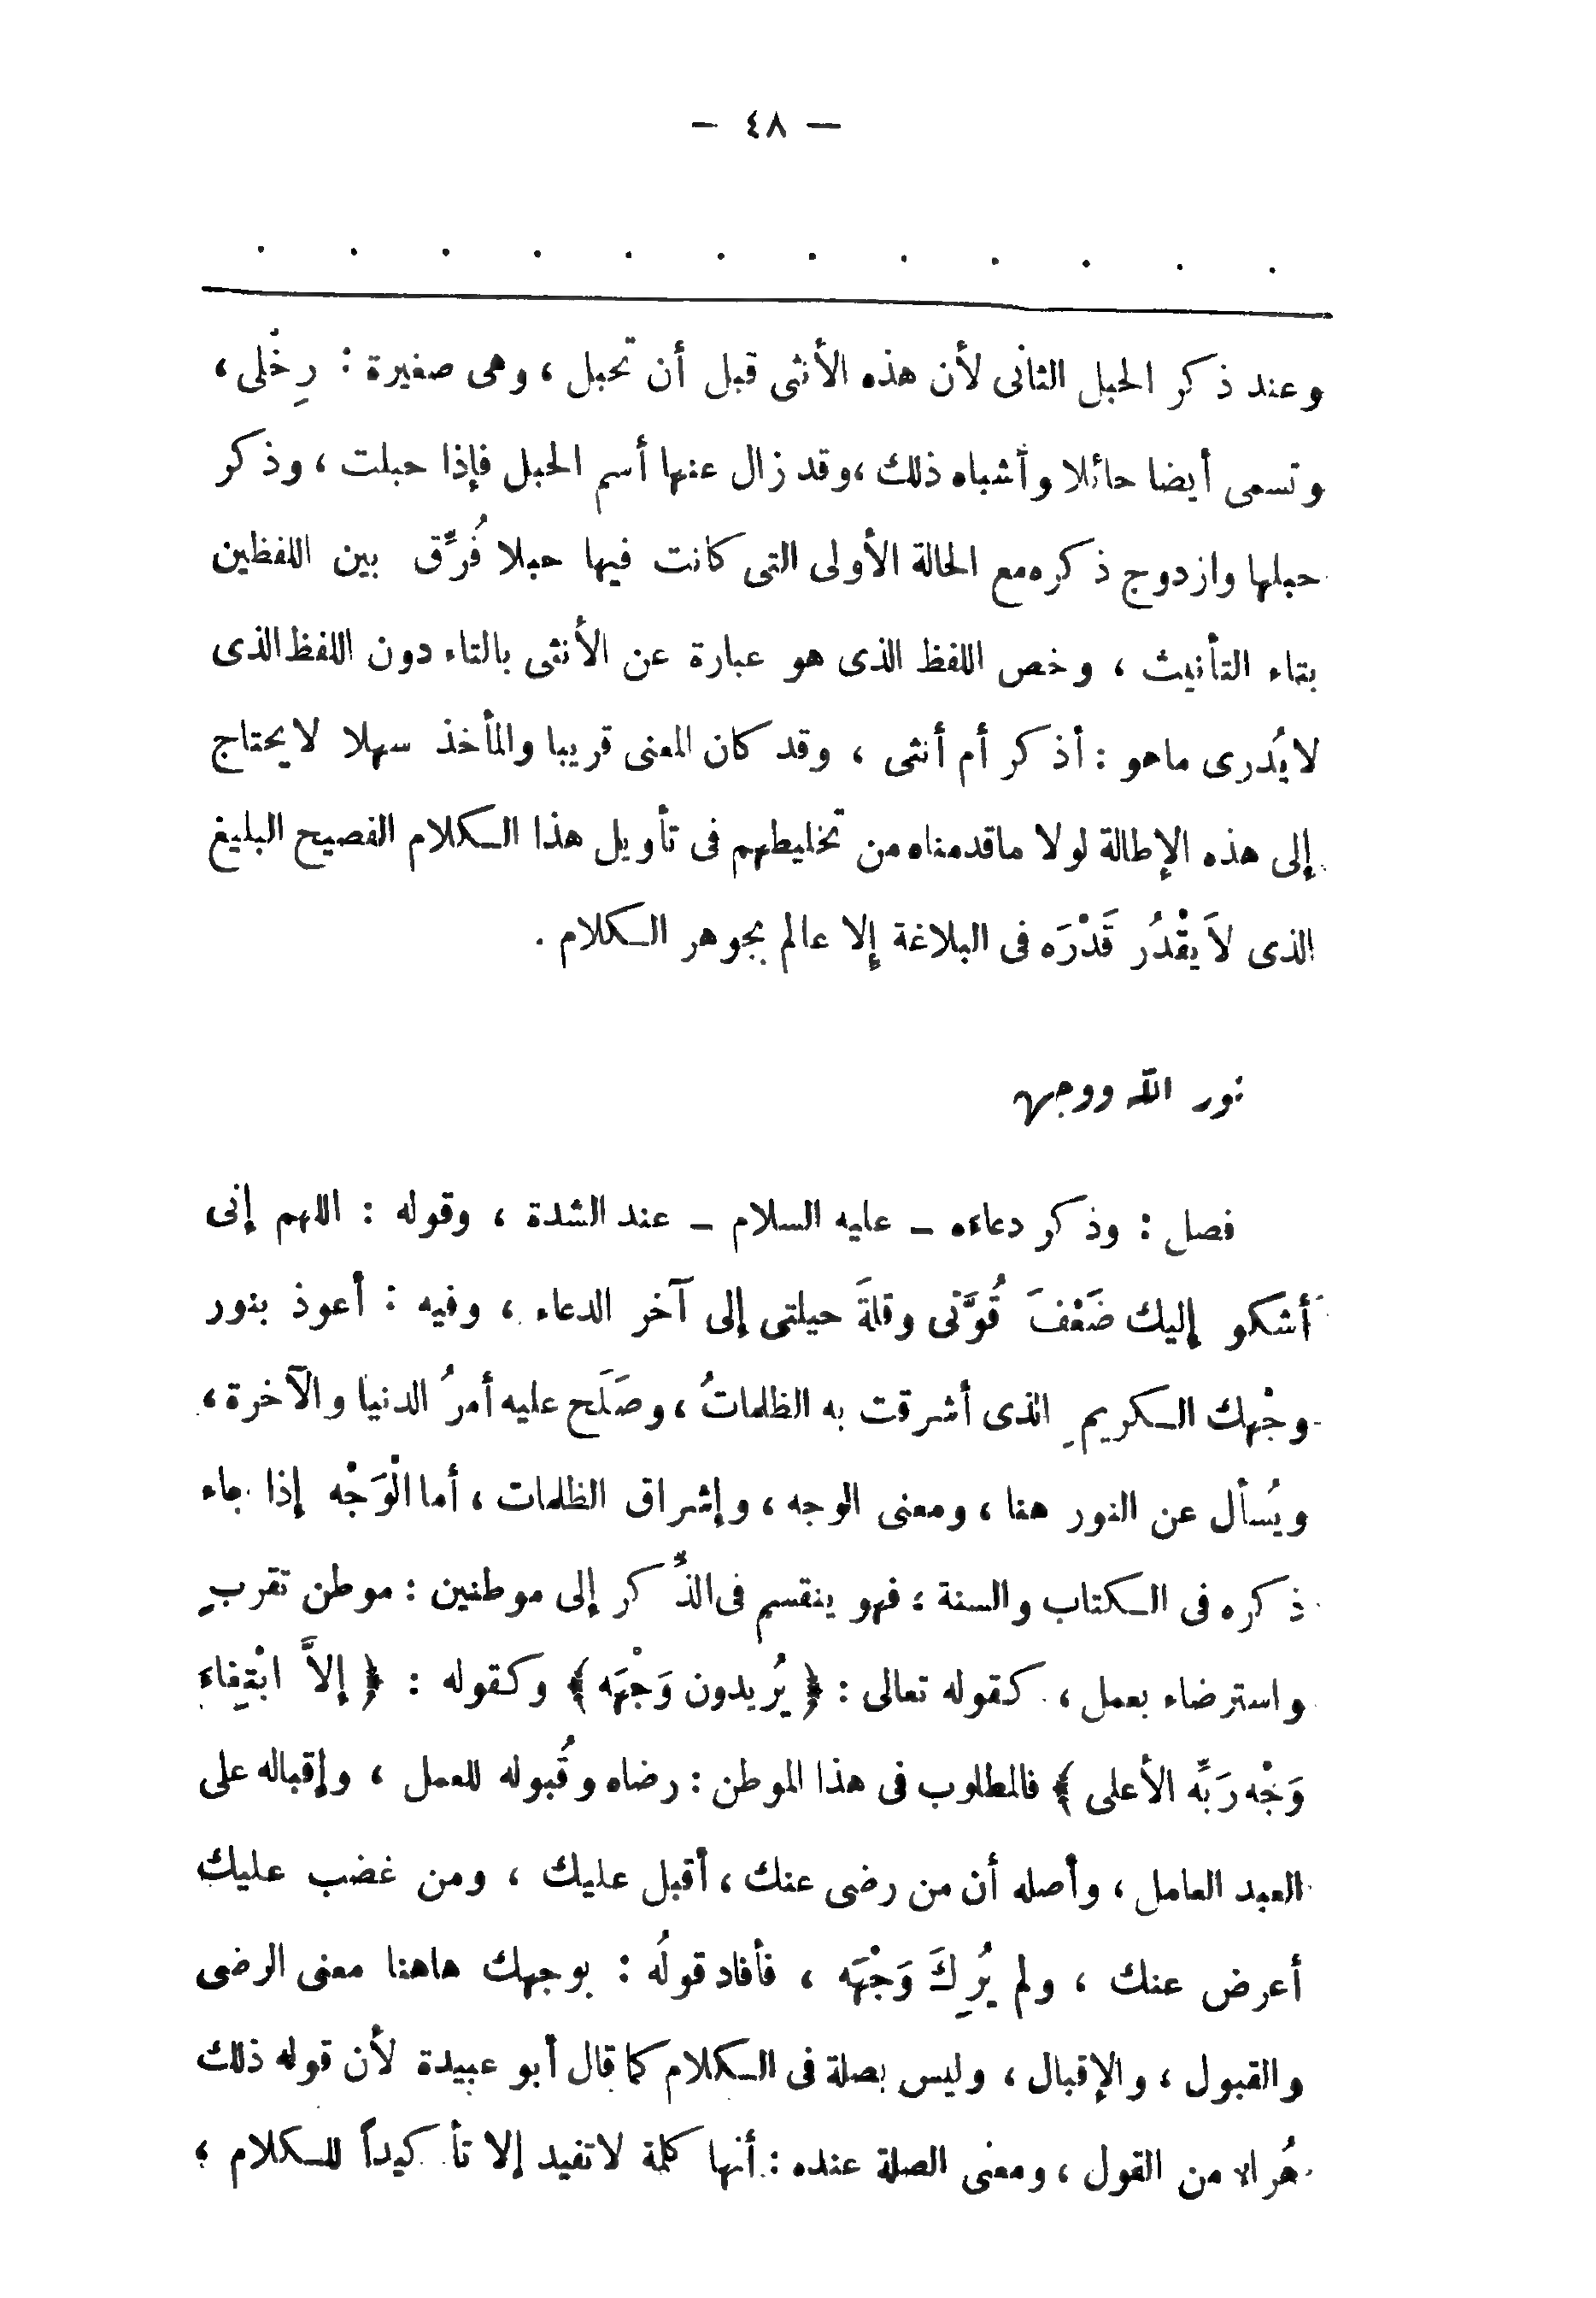 — ٤٨ —
. . . . . . . . . . . .
وعند ذكر الحبل الثانى لأن هذه الأنثى قبل أن تحبل ، وهى صغيرة : رِخْلى ،
وتسمى أيضا حائلا وأشباه ذلك ، وقد زال عنها أسم الحبل فإذا حبلت ، وذكر
حبلها وازدوج ذكره مع الحالة الأولى التى كانت فيها حبلا فُرِّق بين اللفظين
بتاء التأنيث ، وخص اللفظ الذى هو عبارة عن الأنثى بالتاء دون اللفظ الذى
لا يُدرى ماهو : أذكر أم أنثى ، وقد كان المعنى قريبا والمأخذ سهلا لا يحتاج
إلى هذه الإطالة لولا ماقدمناه من تخليطهم فى تأويل هذا الكلام الفصيح البليغ
الذى لاَ يقْدُر قَدْرَه فى البلاغة إلا عالم بجوهر الكلام .
نور الله ووجهه
فصل : وذكر دعاءه – عليه السلام – عند الشدة ، وقوله : اللهم إنى
أشكو إليك ضَعْفَ قُوَّتى وقلةَ حيلتى إلى آخر الدعاء ، وفيه : أعوذ بنور
وجْهك الكريمِ الذى أشرقت به الظلماتُ ، وصَلَح عليه أمرُ الدنيا والآخرة ،
ويُسأل عن النور هنا ، ومعنى الوجه ، وإشراق الظلمات ، أما الْوَجْه إذا جاء
ذكره فى الكتاب والسنة ؛ فهو ينقسم فى الذِّكر إلى موطنين : موطن تقربٍ
واسترضاء بعمل ، كقوله تعالى : ﴿ يُريدون وَجْهَه ﴾ وكقوله : ﴿ إلاَّ ابْتِغاءَ
وَجْه رَبِّه الأعلى ﴾ فالمطلوب فى هذا الموطن : رضاه وقُبوله للعمل ، وإقباله على
العبد العامل ، وأصله أن من رضى عنك ، أقبل عليك ، ومن غضب عليك
أعرض عنك ، ولم يُرِكَ وَجْهَه ، فأفاد قولُه : بوجهك هاهنا معنى الرضى
والقبول ، والإقبال ، وليس بصلة فى الكلام كما قال أبو عبيدة لأن قوله ذلك
هُراء من القول ، ومعنى الصلة عنده : أنها كلمة لا تفيد إلا تأكيداً للكلام ؛